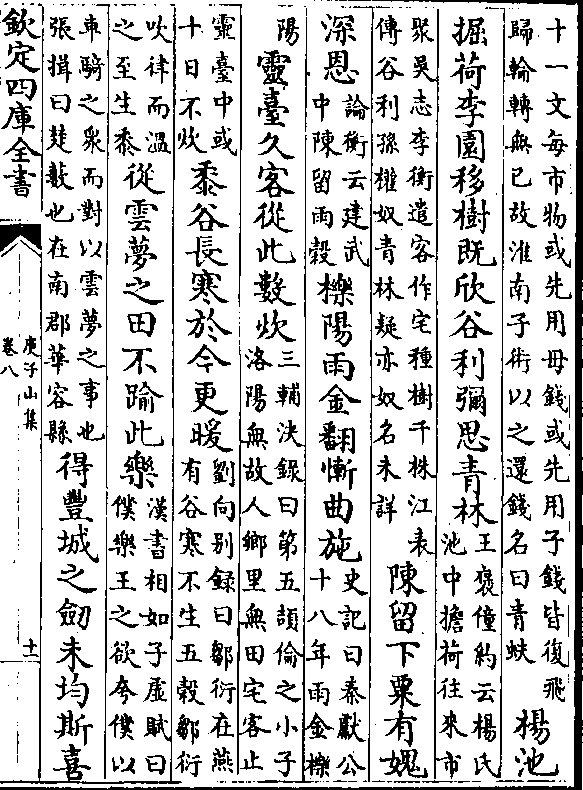 十一文每市物或先用母錢或先用子錢皆復飛
歸輪轉無已故淮南子術以之還錢名曰青蚨
楊池
掘荷李園移樹既欣谷利彌思青林
王褒僮約云楊氏
池中擔荷往來市
聚吳志李衡遣客作宅種樹千株江表
傳谷利孫權奴青林疑亦奴名未詳
陳留下粟有媿
深恩
論衡云建武
中陳留雨穀
櫟陽雨金翻慚曲施
史記曰秦獻公
十八年雨金櫟
陽
靈臺久客從此數炊
三輔決録曰第五頡倫之小子
洛陽無故人鄉里無田宅客止
靈臺中或
十日不炊
黍谷長寒於今更暖
劉向别録曰鄒衍在燕
有谷寒不生五榖鄒衍
吹律而温
之至生黍
從雲夢之田不踰此樂
漢書相如子虛賦曰
僕樂王之欲夸僕以
車騎之衆而對以雲夢之事也
張揖曰楚藪也在南郡華容縣
得豐城之劒未均斯喜
欽定四庫全書
庾子山集
卷八
十一